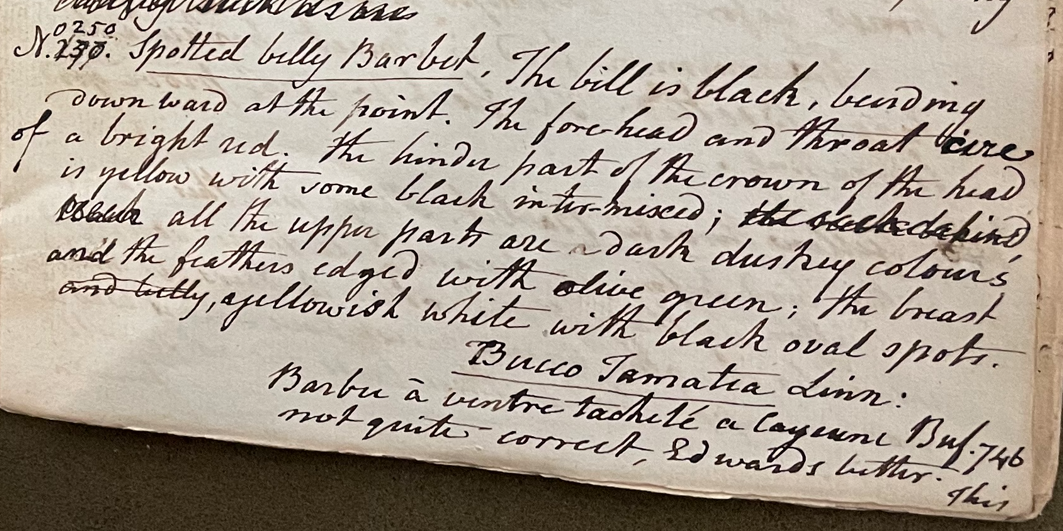 0250
N. 230. Spotted belly Barbet. The bill is black, bending
downward at the point. The fore-head and throat are
of a bright red. the hinder part of the crown of the head
is yellow with some black inter-mixed; the neck behind
black all the upper parts are a dark duskey colours
and the feathers edged with olive green; the breast
and belly, a yellowish white with black oval spots.
Bucco Tamatia Linn:
Barbu a ventre tacheté a Cayenne Buf. 746
not quite correct, Edwards better.
This